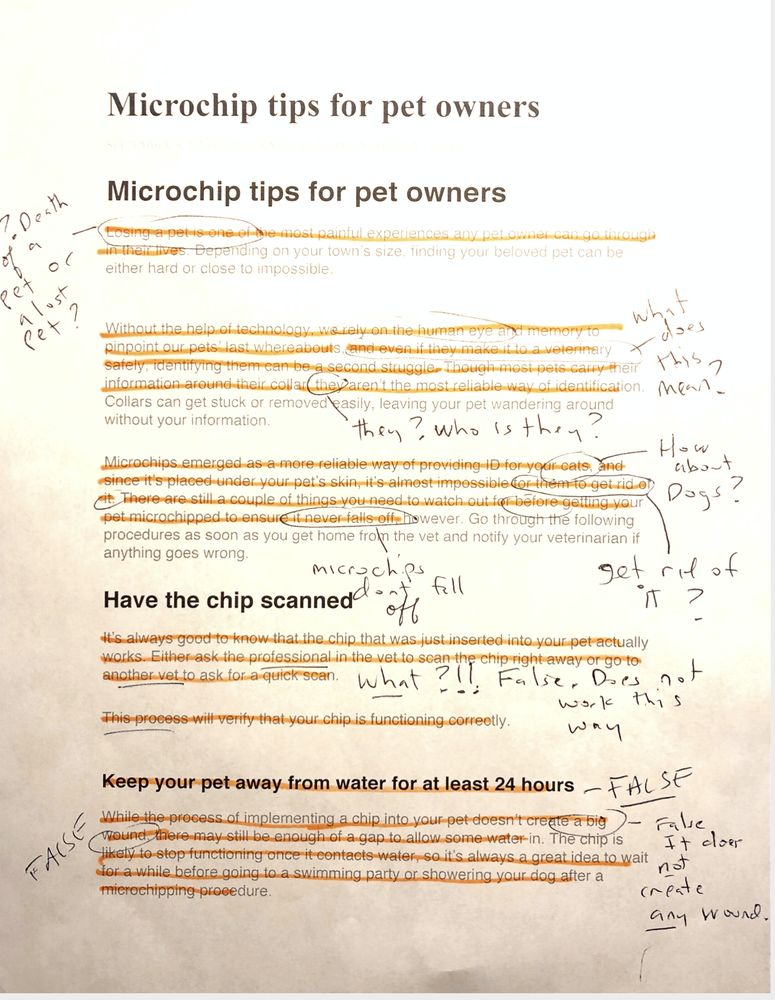 Microchip tips for pet owners
Microchip tips for pet owners
?. Death
of a
pet or
a lost
pet?
Losing a pet is one of the most painful experiences any pet owner can go through
in their lives. Depending on your town's size, finding your beloved pet can be
either hard or close to impossible.
Without the help of technology, we rely on the human eye and memory to
pinpoint our pets' last whereabouts, and even if they make it to a veterinary
safely, identifying them can be a second struggle. Though most pets carry their
information around their collar, they aren't the most reliable way of identification.
Collars can get stuck or removed easily, leaving your pet wandering around
without your information.
what
does
this
mean?
they? Who is they?
Microchips emerged as a more reliable way of providing ID for your cats, and
since it's placed under your pet's skin, it's almost impossible for them to get rid of
it. There are still a couple of things you need to watch out for before getting your
pet microchipped to ensure it never falls off, however. Go through the following
procedures as soon as you get home from the vet and notify your veterinarian if
anything goes wrong.
How
about
Dogs?
get rid of
it?
microchips
dont fall
off
Have the chip scanned
It's always good to know that the chip that was just inserted into your pet actually
works. Either ask the professional in the vet to scan the chip right away or go to
another vet to ask for a quick scan.
What?!! False. Does not
work this
way
This process will verify that your chip is functioning correctly.
Keep your pet away from water for at least 24 hours
– FALSE
While the process of implementing a chip into your pet doesn't create a big
wound, there may still be enough of a gap to allow some water in. The chip is
likely to stop functioning once it contacts water, so it's always a great idea to wait
for a while before going to a swimming party or showering your dog after a
microchipping procedure.
FALSE
– False
It does
not
create
any wound.